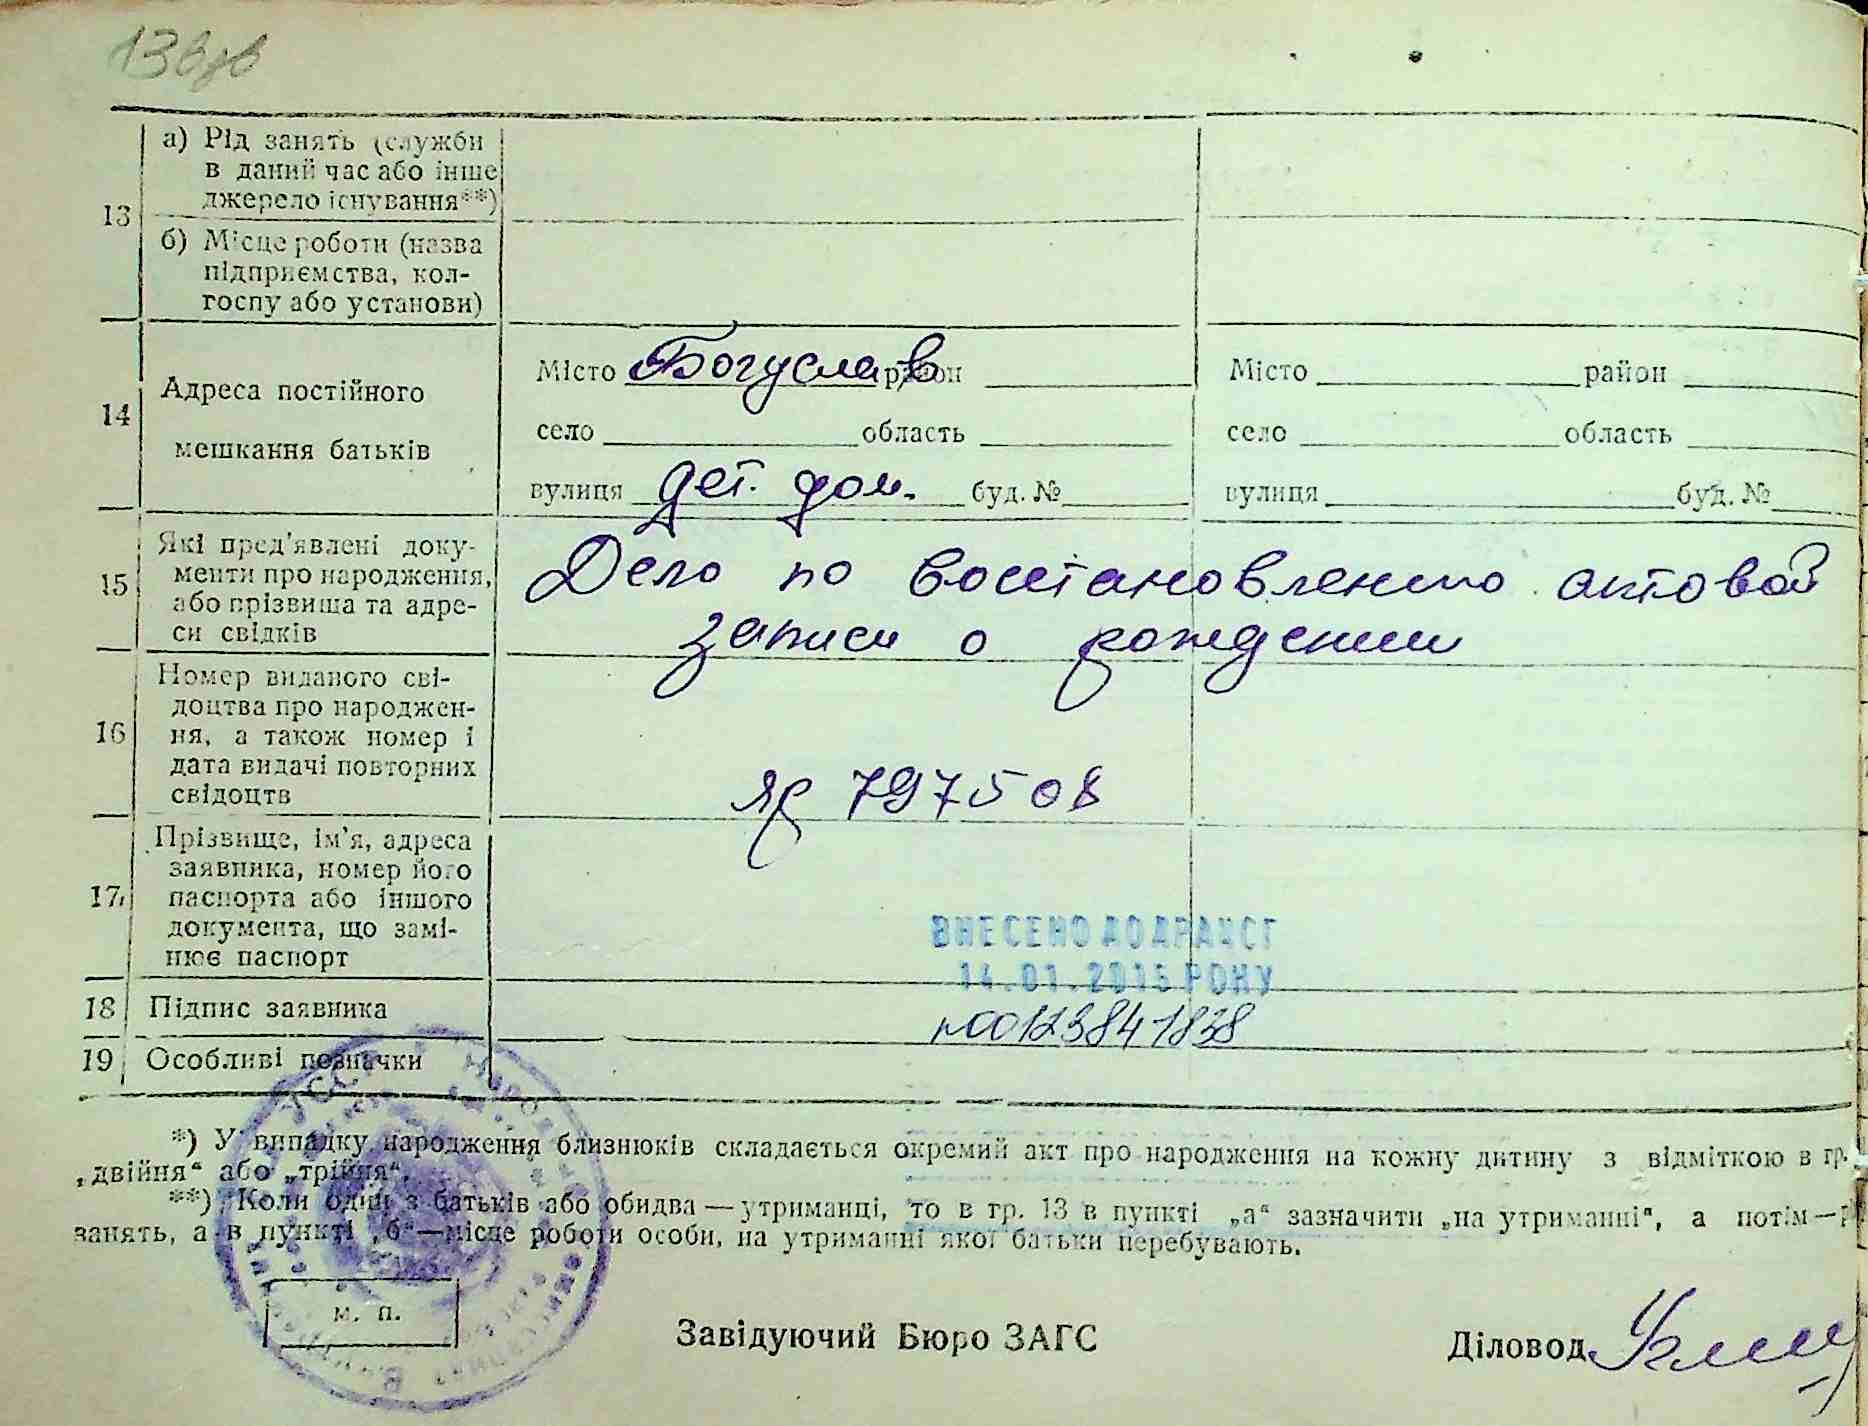 13
а) Рід занять (служби
в даний час або інше
джерело існування**)
13
б) Місце роботи (назва
підприємства, кол-
госпу або установи)
Місто Богуслав район
Місто район
Адреса постійного
14
село область
село область
мешкання батьків
вулиця дет. дом. буд. №
вулиця буд. №
Які пред'явлені доку-
менти про народження,
або прізвища та адре-
си свідків
15
Дело по восстановлению актовой
записи о рождении
Номер виданого сві-
доцтва про народжен-
ня, а також номер і
дата видачі повторних
свідоцтв
16
яр 797508
Прізвище, ім'я, адреса
заявника, номер його
паспорта або іншого
документа, що замі-
нює паспорт
17
ВНЕСЕНО ДО ДРАЦСГ
14.01.2015 РОКУ
18 Підпис заявника
00123841838
19 Особливі позначки
*) У випадку народження близнюків складається окремий акт про народження на кожну дитину з відміткою в гр.
„двійня“ або „трійня“.
**) Коли один з батьків або обидва — утриманці, то в гр. 13 в пункті „а“ зазначити „на утриманні“, а потім —
занять, а в пункті „б“ — місце роботи особи, на утриманні якої батьки перебувають.
УССР
м. п.
Завідуючий Бюро ЗАГС
Діловод